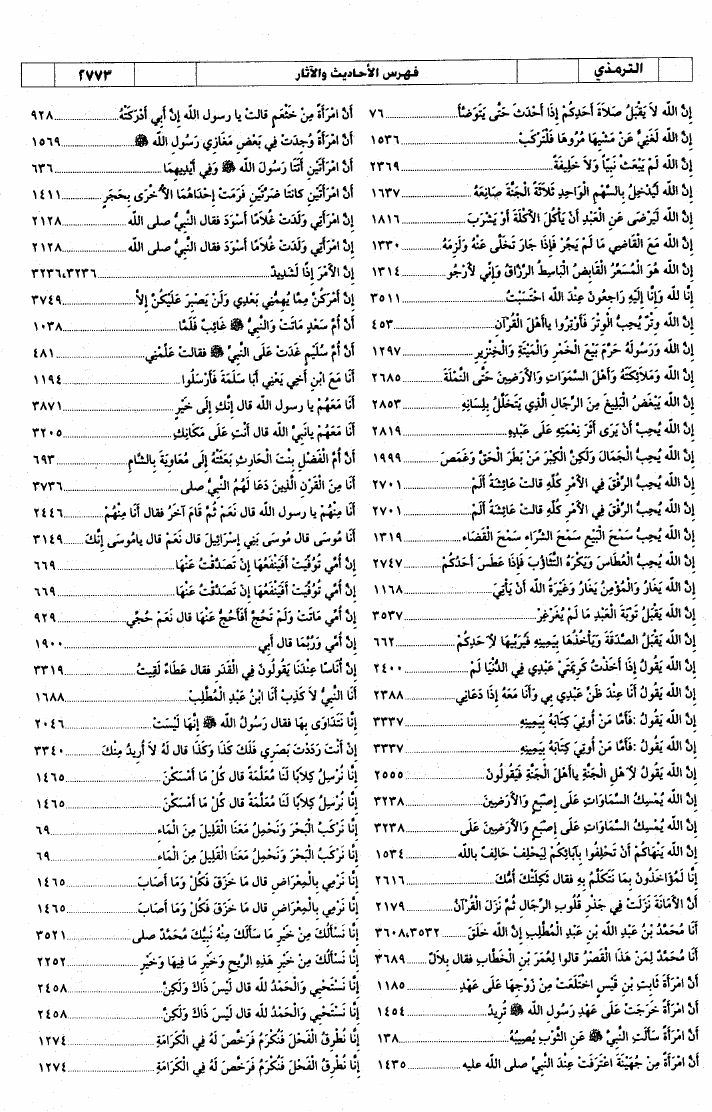 الترمذي
فهرس الأحاديث والآثار
٢٧٧٣
إِنَّ الله لاَ يَقْبَلُ صَلاَةَ أَحَدِكُمْ إِذَا أَحْدَثَ حَتَّى يَتَوَضَّأَ ... ٧٦
إِنَّ الله لَغَنِيٌّ عَنْ مَشْيِهَا مُرُوهَا فَلْتَرْكَبْ ... ١٥٣٦
إِنَّ الله لَمْ يَبْعَثْ نَبِيّاً وَلاَ خَلِيفَةً ... ٢٣٦٩
إِنَّ الله لَيُدْخِلُ بِالسَّهْمِ الْوَاحِدِ ثَلاَثَةً الْجَنَّةَ صَانِعَهُ ... ١٦٣٧
إِنَّ الله لَيَرْضَى عَنِ الْعَبْدِ أَنْ يَأْكُلَ الأَكْلَةَ أَوْ يَشْرَبَ ... ١٨١٦
إِنَّ الله مَعَ الْقَاضِي مَا لَمْ يَجُرْ فَإِذَا جَارَ تَخَلَّى عَنْهُ وَلَزِمَهُ ... ١٣٣٠
إِنَّ الله هُوَ الْمُسَعِّرُ الْقَابِضُ الْبَاسِطُ الرَّزَّاقُ وَإِنِّي لأَرْجُو ... ١٣١٤
إِنَّا لله وَإِنَّا إِلَيْهِ رَاجِعُونَ عِنْدَ الله احْتَسَبْتُ ... ٣٥١١
إِنَّ الله وِتْرٌ يُحِبُّ الْوِتْرَ فَأَوْتِرُوا يَاأَهْلَ الْقُرْآنِ ... ٤٥٣
إِنَّ الله وَرَسُولَهُ حَرَّمَ بَيْعَ الْخَمْرِ وَالْمَيْتَةِ وَالْخِنْزِيرِ ... ١٢٩٧
إِنَّ الله وَمَلاَئِكَتَهُ وَأَهْلَ السَّمَوَاتِ وَالأَرْضِينَ حَتَّى النَّمْلَةَ ... ٢٦٨٥
إِنَّ الله يَبْغَضُ الْبَلِيغَ مِنَ الرِّجَالِ الَّذِي يَتَخَلَّلُ بِلِسَانِهِ ... ٢٨٥٣
إِنَّ الله يُحِبُّ أَنْ يَرَى أَثَرَ نِعْمَتِهِ عَلَى عَبْدِهِ ... ٢٨١٩
إِنَّ الله يُحِبُّ الْجَمَالَ وَلَكِنَّ الْكِبْرَ مَنْ بَطَرَ الْحَقَّ وَغَمَصَ ... ١٩٩٩
إِنَّ الله يُحِبُّ الرِّفْقَ فِي الأَمْرِ كُلِّهِ قالت عَائِشَةُ أَلَمْ ... ٢٧٠١
إِنَّ الله يُحِبُّ الرِّفْقَ فِي الأَمْرِ كُلِّهِ قالت عَائِشَةُ أَلَمْ ... ٢٧٠١
إِنَّ الله يُحِبُّ سَمْحَ الْبَيْعِ سَمْحَ الشِّرَاءِ سَمْحَ الْقَضَاءِ ... ١٣١٩
إِنَّ الله يُحِبُّ الْعُطَاسَ وَيَكْرَهُ التَّثَاؤُبَ فَإِذَا عَطَسَ أَحَدُكُمْ ... ٢٧٤٧
إِنَّ الله يَغَارُ وَالْمُؤْمِنُ يَغَارُ وَغَيْرَةُ الله أَنْ يَأْتِيَ ... ١١٦٨
إِنَّ الله يَقْبَلُ تَوْبَةَ الْعَبْدِ مَا لَمْ يُغَرْغِرْ ... ٣٥٣٧
إِنَّ الله يَقْبَلُ الصَّدَقَةَ وَيَأْخُذُهَا بِيَمِينِهِ فَيُرَبِّيهَا لأَحَدِكُمْ ... ٦٦٢
إِنَّ الله يَقُولُ إِذَا أَخَذْتُ كَرِيمَتَيْ عَبْدِي فِي الدُّنْيَا لَمْ ... ٢٤٠٠
إِنَّ الله يَقُولُ أَنَا عِنْدَ ظَنِّ عَبْدِي بِي وَأَنَا مَعَهُ إِذَا دَعَانِي ... ٢٣٨٨
إِنَّ الله يَقُولُ :فَأَمَّا مَنْ أُوتِيَ كِتَابَهُ بِيَمِينِهِ ... ٣٣٣٧
إِنَّ الله يَقُولُ :فَأَمَّا مَنْ أُوتِيَ كِتَابَهُ بِيَمِينِهِ ... ٣٣٣٧
إِنَّ الله يَقُولُ لأَهْلِ الْجَنَّةِ يَاأَهْلَ الْجَنَّةِ فَيَقُولُونَ ... ٢٥٥٥
إِنَّ الله يُمْسِكُ السَّمَاوَاتِ عَلَى إِصْبَعٍ وَالأَرَضِينَ ... ٣٢٣٨
إِنَّ الله يُمْسِكُ السَّمَاوَاتِ عَلَى إِصْبَعٍ وَالأَرَضِينَ عَلَى ... ٣٢٣٨
إِنَّ الله يَنْهَاكُمْ أَنْ تَحْلِفُوا بِآبَائِكُمْ لِيَحْلِفْ حَالِفٌ بالله ... ١٥٣٤
إِنَّا لَمُؤَاخَذُونَ بِمَا نَتَكَلَّمُ بِهِ فقال ثَكِلَتْكَ أُمُّكَ ... ٢٦١٦
أَنَّ الأَمَانَةَ نَزَلَتْ فِي جَذْرِ قُلُوبِ الرِّجَالِ ثُمَّ نَزَلَ الْقُرْآنُ ... ٢١٧٩
أَنَا مُحَمَّدُ بْنُ عَبْدِ الله بْنِ عَبْدِ الْمُطَّلِبِ إِنَّ الله خَلَقَ ... ٣٦٠٨،٣٥٣٢
أَنَا مُحَمَّدٌ لِمَنْ هَذَا الْقَصْرُ قالوا لِعُمَرَ بْنِ الْخَطَّابِ فقال بِلاَلٌ ... ٣٦٨٩
أَنَّ امْرَأَةَ ثَابِتِ بْنِ قَيْسٍ اخْتَلَعَتْ مِنْ زَوْجِهَا عَلَى عَهْدِ ... ١١٨٥
أَنَّ امْرَأَةً خَرَجَتْ عَلَى عَهْدِ رَسُولِ الله ﷺ تُرِيدُ ... ١٤٥٤
أَنَّ امْرَأَةً سَأَلَتِ النَّبِيَّ ﷺ عَنِ الثَّوْبِ يُصِيبُهُ ... ١٣٨
أَنَّ امْرَأَةً مِنْ جُهَيْنَةَ اعْتَرَفَتْ عِنْدَ النَّبِيِّ صلى الله عليه ... ١٤٣٥
أَنَّ امْرَأَةً مِنْ خَثْعَمٍ قالت يا رسول الله إِنَّ أَبِي أَدْرَكَتْهُ ... ٩٢٨
أَنَّ امْرَأَةً وُجِدَتْ فِي بَعْضِ مَغَازِي رَسُولِ الله ﷺ ... ١٥٦٩
أَنَّ امْرَأَتَيْنِ أَتَتَا رَسُولَ الله ﷺ وَفِي أَيْدِيهِمَا ... ٦٣٦
أَنَّ امْرَأَتَيْنِ كانتَا ضَرَّتَيْنِ فَرَمَتْ إِحْدَاهُمَا الأُخْرَى بِحَجَرٍ ... ١٤١١
إِنَّ امْرَأَتِي وَلَدَتْ غُلاَمًا أَسْوَدَ فقال النَّبِيُّ صلى الله ... ٢١٢٨
إِنَّ امْرَأَتِي وَلَدَتْ غُلاَمًا أَسْوَدَ فقال النَّبِيُّ صلى الله ... ٢١٢٨
إِنَّ الأَمْرَ إِذًا لَشَدِيدٌ ... ٣٢٣٦،٣٢٣٦
إِنَّ أَمْرَكُنَّ مِمَّا يُهِمُّنِي بَعْدِي وَلَنْ يَصْبِرَ عَلَيْكُنَّ إِلاَّ ... ٣٧٤٩
أَنَّ أُمَّ سَعْدٍ مَاتَتْ وَالنَّبِيُّ ﷺ غَائِبٌ فَلَمَّا ... ١٠٣٨
أَنَّ أُمَّ سُلَيْمٍ غَدَتْ عَلَى النَّبِيِّ ﷺ فقالت عَلِّمْنِي ... ٤٨١
أَنَا مَعَ ابْنِ أَخِي يَعْنِي أَبَا سَلَمَةَ فَأَرْسَلُوا ... ١١٩٤
أَنَا مَعَهُمْ يا رسول الله قال إِنَّكِ إِلَى خَيْرٍ ... ٣٨٧١
أَنَا مَعَهُمْ يانَبِيَّ الله قال أَنْتِ عَلَى مَكَانِكِ ... ٣٢٠٥
أَنَّ أُمَّ الْفَضْلِ بِنْتَ الْحَارِثِ بَعَثَتْهُ إِلَى مُعَاوِيَةَ بِالشَّامِ ... ٦٩٣
أَنَا مِنَ الْقَرْنِ الَّذِينَ دَعَا لَهُمُ النَّبِيُّ صلى ... ٣٧٣٦
أَنَا مِنْهُمْ يا رسول الله قال نَعَمْ ثُمَّ قَامَ آخَرُ فقال أَنَا مِنْهُمْ ... ٢٤٤٦
أَنَا مُوسَى قال مُوسَى بَنِي إِسْرَائِيلَ قال نَعَمْ قال يامُوسَى إِنَّكَ ... ٣١٤٩
إِنَّ أُمِّي تُوُفِّيَتْ أَفَيَنْفَعُهَا إِنْ تَصَدَّقْتُ عَنْهَا ... ٦٦٩
إِنَّ أُمِّي تُوُفِّيَتْ أَفَيَنْفَعُهَا إِنْ تَصَدَّقْتُ عَنْهَا ... ٦٦٩
إِنَّ أُمِّي مَاتَتْ وَلَمْ تَحُجَّ أَفَأَحُجُّ عَنْهَا قال نَعَمْ حُجِّي ... ٩٢٩
إِنَّ أُمِّي وَرُبَّمَا قال أَبِي ... ١٩٠٠
إِنَّ أُنَاسًا عِنْدَنَا يَقُولُونَ فِي الْقَدَرِ فقال عَطَاءٌ لَقِيتُ ... ٣٣١٩
أَنَا النَّبِيُّ لاَ كَذِبْ أَنَا ابْنُ عَبْدِ الْمُطَّلِبْ ... ١٦٨٨
إِنَّا نَتَدَاوَى بِهَا فقال رَسُولُ الله ﷺ إِنَّهَا لَيْسَتْ ... ٢٠٤٦
إِنْ أَنْتَ رَدَدْتَ بَصَرِي فَلَكَ كَذَا وَكَذَا قال لَهُ لاَ أُرِيدُ مِنْكَ ... ٣٣٤٠
إِنَّا نُرْسِلُ كِلاَبًا لَنَا مُعَلَّمَةً قال كُلْ مَا أَمْسَكْنَ ... ١٤٦٥
إِنَّا نُرْسِلُ كِلاَبًا لَنَا مُعَلَّمَةً قال كُلْ مَا أَمْسَكْنَ ... ١٤٦٥
إِنَّا نَرْكَبُ الْبَحْرَ وَنَحْمِلُ مَعَنَا الْقَلِيلَ مِنَ الْمَاءِ ... ٦٩
إِنَّا نَرْكَبُ الْبَحْرَ وَنَحْمِلُ مَعَنَا الْقَلِيلَ مِنَ الْمَاءِ ... ٦٩
إِنَّا نَرْمِي بِالْمِعْرَاضِ قال مَا خَزَقَ فَكُلْ وَمَا أَصَابَ ... ١٤٦٥
إِنَّا نَرْمِي بِالْمِعْرَاضِ قال مَا خَزَقَ فَكُلْ وَمَا أَصَابَ ... ١٤٦٥
إِنَّا نَسْأَلُكَ مِنْ خَيْرِ مَا سَأَلَكَ مِنْهُ نَبِيُّكَ مُحَمَّدٌ صلى ... ٣٥٢١
إِنَّا نَسْأَلُكَ مِنْ خَيْرِ هَذِهِ الرِّيحِ وَخَيْرِ مَا فِيهَا وَخَيْرِ ... ٢٢٥٢
إِنَّا نَسْتَحْيِي وَالْحَمْدُ لله قال لَيْسَ ذَاكَ وَلَكِنَّ ... ٢٤٥٨
إِنَّا نَسْتَحْيِي وَالْحَمْدُ لله قال لَيْسَ ذَاكَ وَلَكِنَّ ... ٢٤٥٨
إِنَّا نُطْرِقُ الْفَحْلَ فَنُكْرَمُ فَرَخَّصَ لَهُ فِي الْكَرَامَةِ ... ١٢٧٤
إِنَّا نُطْرِقُ الْفَحْلَ فَنُكْرَمُ فَرَخَّصَ لَهُ فِي الْكَرَامَةِ ... ١٢٧٤